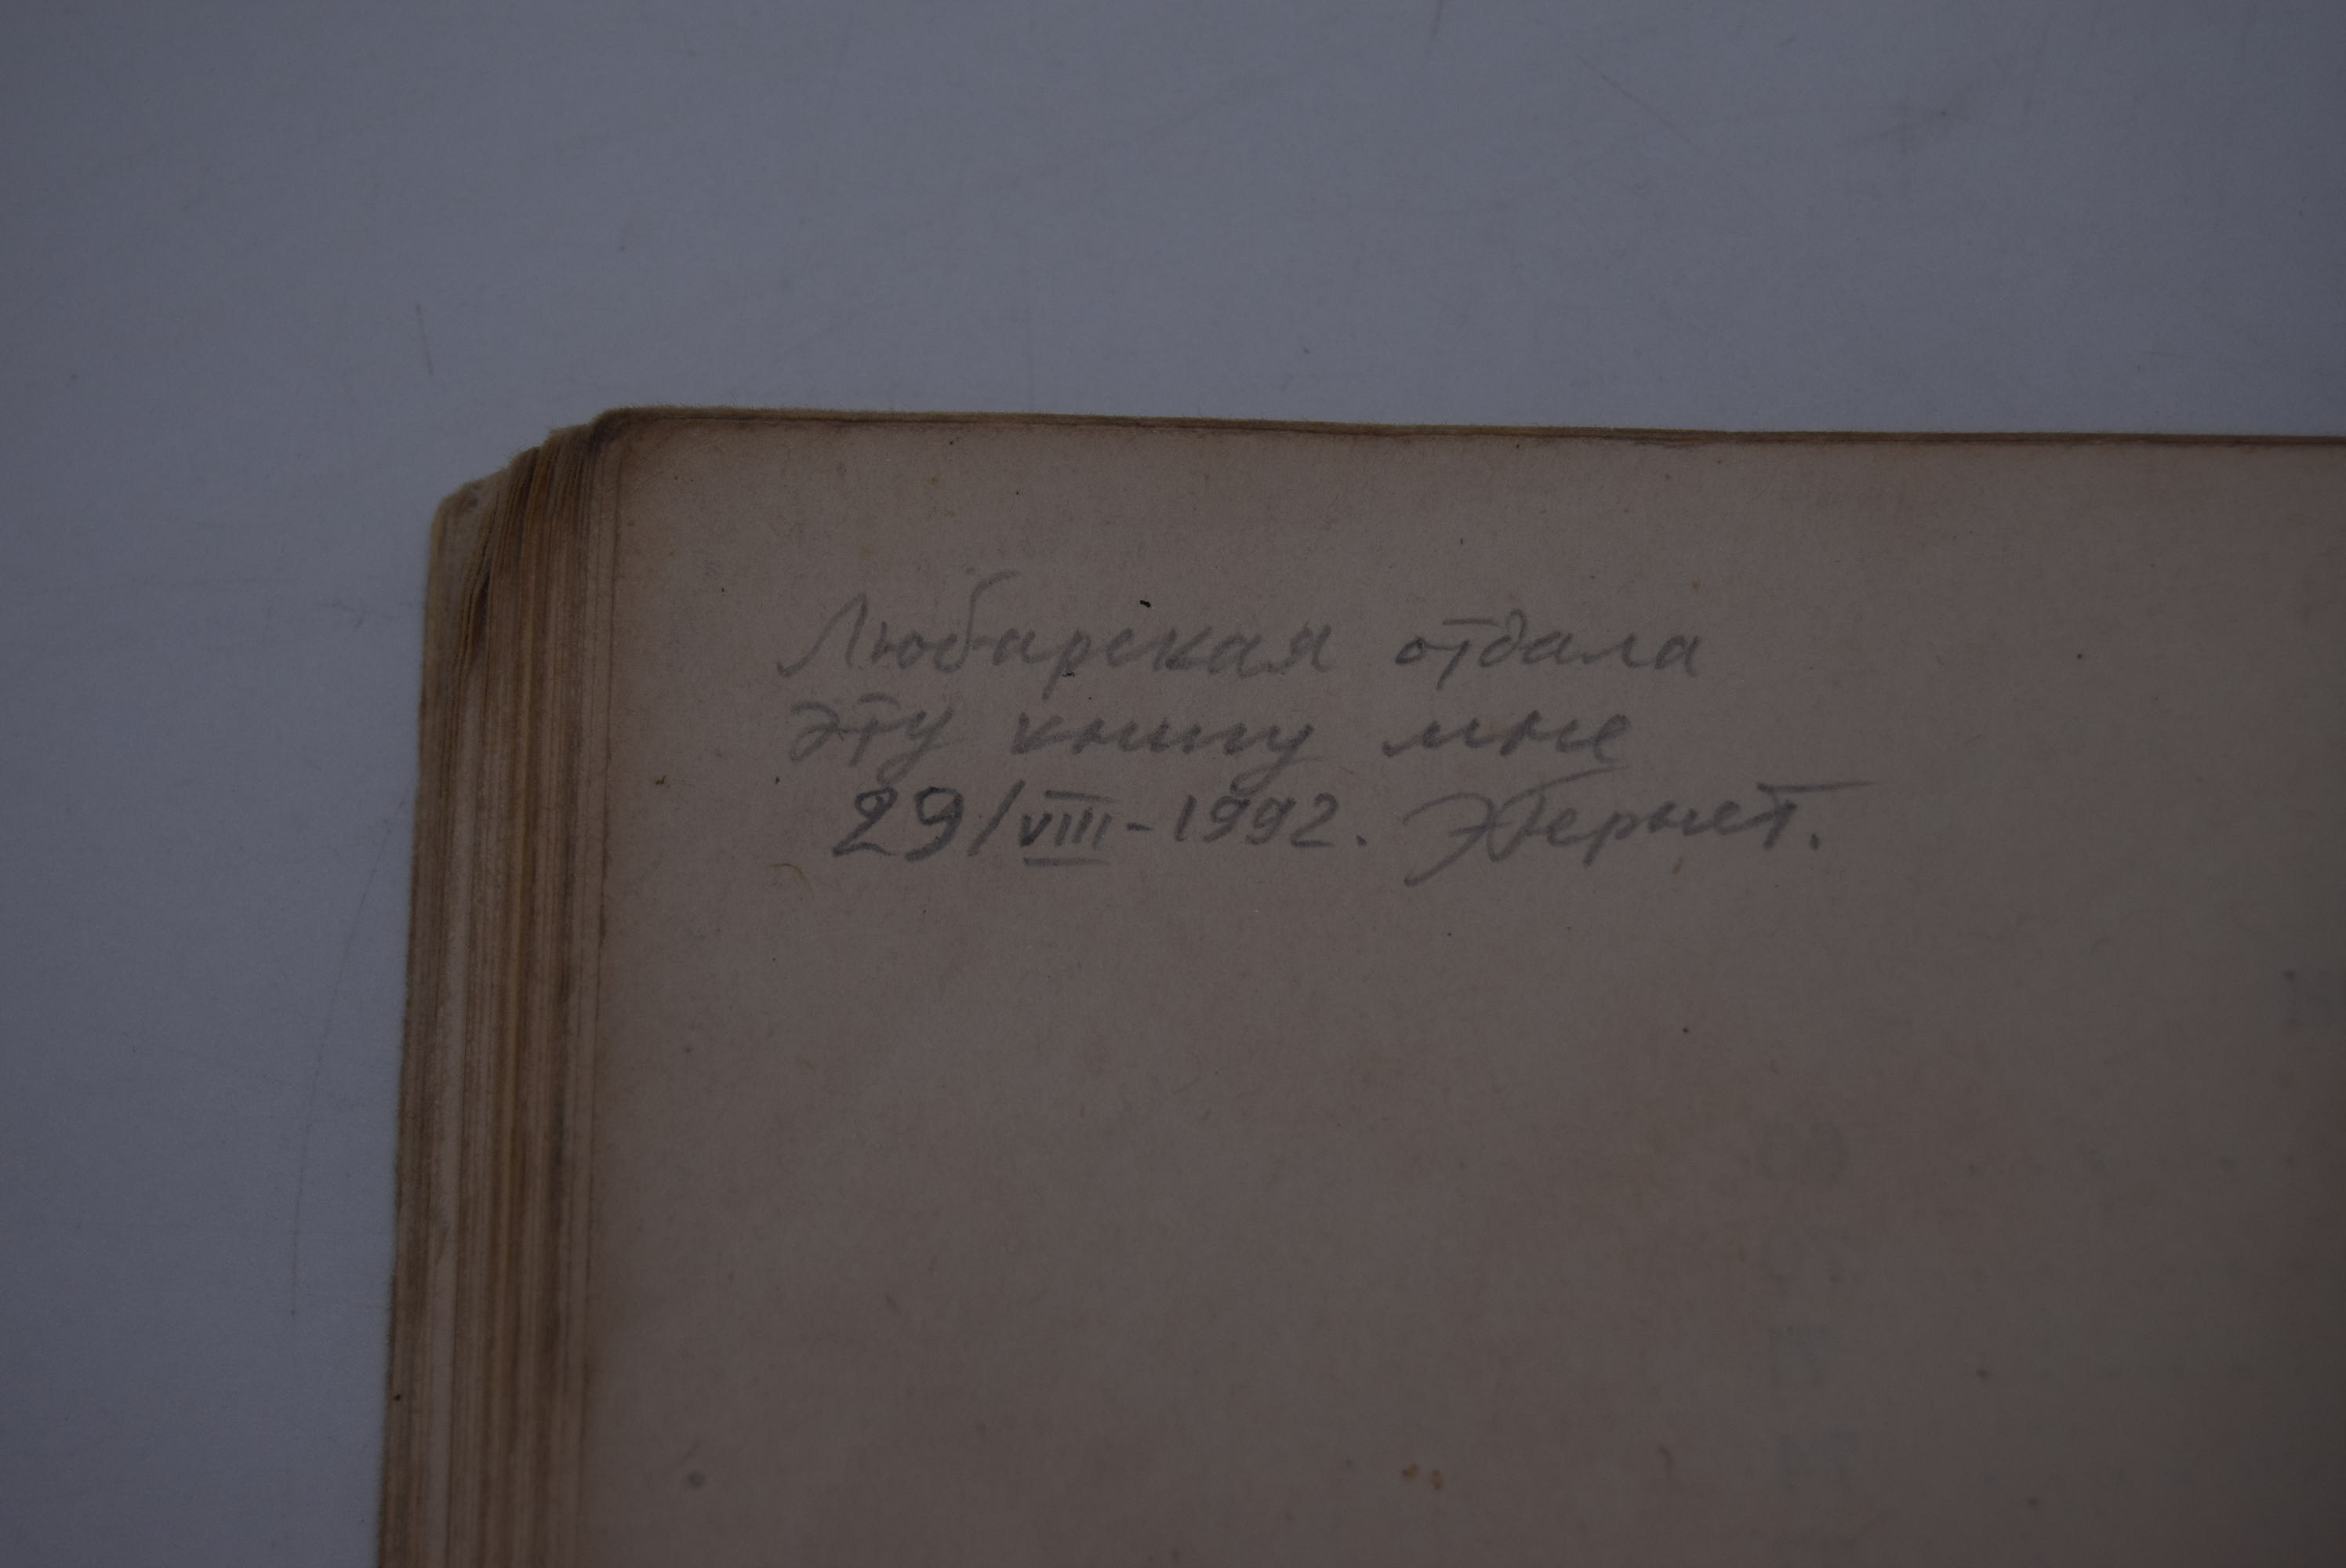 Любарская отдала
эту книгу мне
29/VIII-1992.